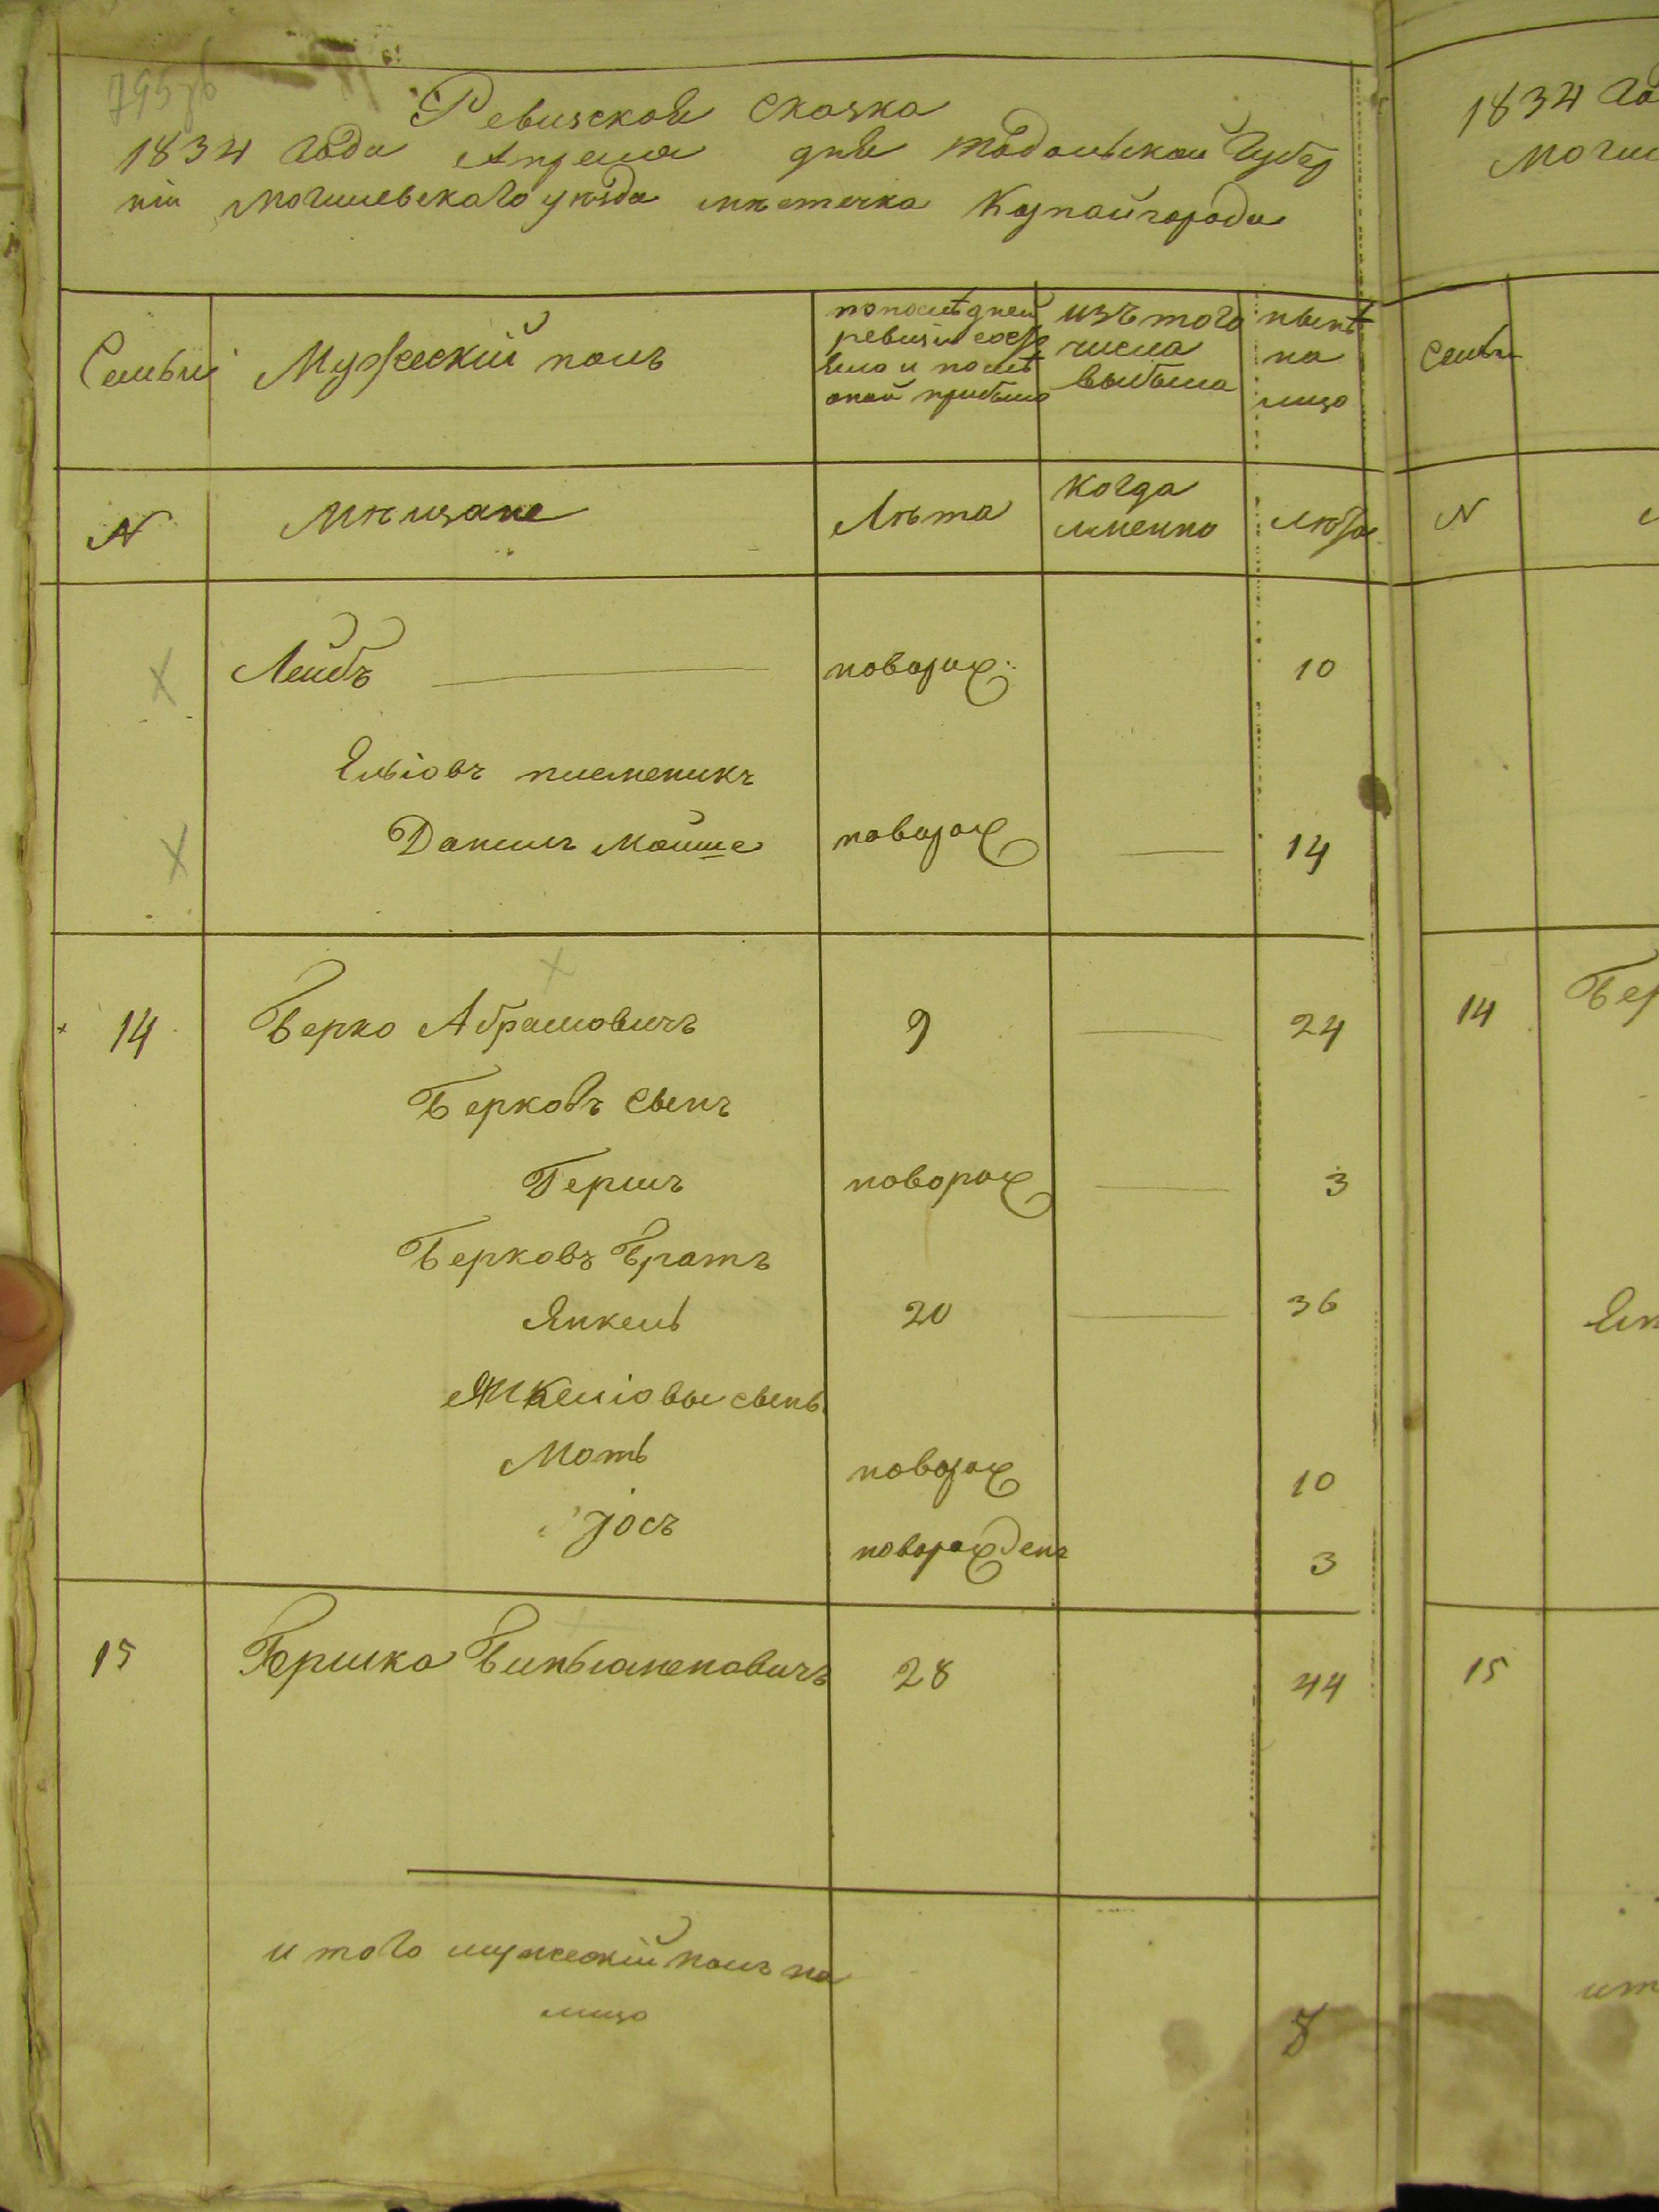 Ревизская Сказка
1834 Года Апреля дня Подольской Губер
ніи Могилевскаго уѣзда мѣстечка Копайгорода
Семьи
Мужескій полъ
по послѣдней
ревизіи состо
яло и послѣ
оной прибыло
изъ того
числа
выбыло
нынѣ
на
лицо
N
Мѣщане
Лѣта
когда
именно
лѣта
Лейбъ новорож: 10
племеникъ
Данилъ Мойше новорож 14
14 Берко Абрамовичъ 9 24
Берковъ Сынъ
Гершъ новорож 3
Берковъ Братъ
Янкель 20 36
Янкеліовы сынь
Моть новорож 10
Іосъ новорожденъ 3
15 Гершко Биньяменовичъ 28 44
итого мужескій полъ на
лицо 8
1834 Го
Моги
Семьи
N
14 Бер
Ян
15
ит